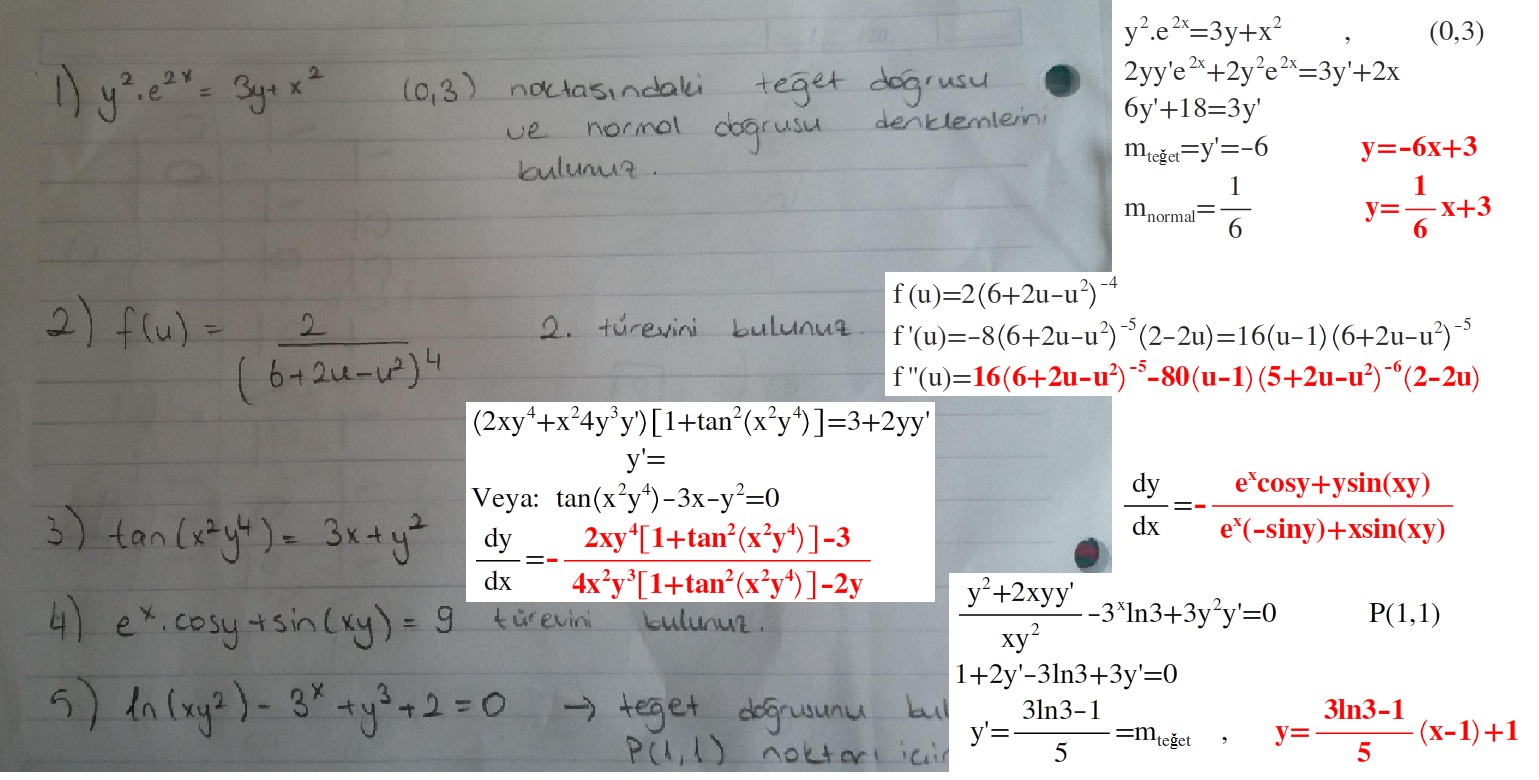 1) y².e²ˣ = 3y+x² (0,3) noktasındaki teğet doğrusu
ve normal doğrusu denklemlerini
bulunuz.
y².e²ˣ=3y+x² , (0,3)
2yy'e²ˣ+2y²e²ˣ=3y'+2x
6y'+18=3y'
m_teğet=y'=-6 y=-6x+3
m_normal=1/6 y=1/6 x+3
2) f(u) = 2/(6+2u-u²)⁴ 2. türevini bulunuz.
f(u)=2(6+2u-u²)⁻⁴
f'(u)=-8(6+2u-u²)⁻⁵(2-2u)=16(u-1)(6+2u-u²)⁻⁵
f"(u)=16(6+2u-u²)⁻⁵-80(u-1)(5+2u-u²)⁻⁶(2-2u)
3) tan(x²y⁴) = 3x+y²
(2xy⁴+x²4y³y')[1+tan²(x²y⁴)]=3+2yy'
y'=
Veya: tan(x²y⁴)-3x-y²=0
dy/dx=-(2xy⁴[1+tan²(x²y⁴)]-3)/(4x²y³[1+tan²(x²y⁴)]-2y)
4) eˣ.cosy+sin(xy) = 9 türevini bulunuz.
dy/dx=-(eˣcosy+ysin(xy))/(eˣ(-siny)+xsin(xy))
5) ln(xy²) - 3ˣ + y³ + 2 = 0 → teğet doğrusunu bul
P(1,1) noktası için
(y²+2xyy')/(xy²)-3ˣln3+3y²y'=0 P(1,1)
1+2y'-3ln3+3y'=0
y'=(3ln3-1)/5=m_teğet , y=(3ln3-1)/5 (x-1)+1